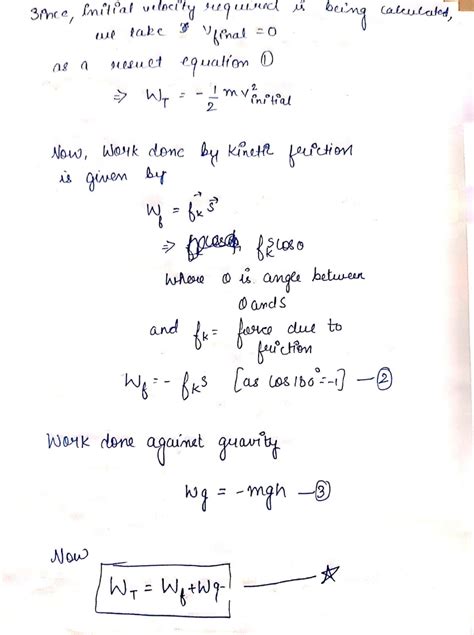 Since, Initial velocity required is being calculated,
we take V_final = 0
as a result equation ①
⇒ W_T = -1/2 m v²_initial
Now, Work done by kinetic friction
is given by
W_f = f_k→ s→
⇒ f_k s cos θ
Where θ is angle between
θ and S
and f_k = force due to
friction
W_f = - f_k s [as cos 180° = -1] — ②
Work done against gravity
Wg = -mgh — ③
Now
W_T = W_f + Wg — ☆